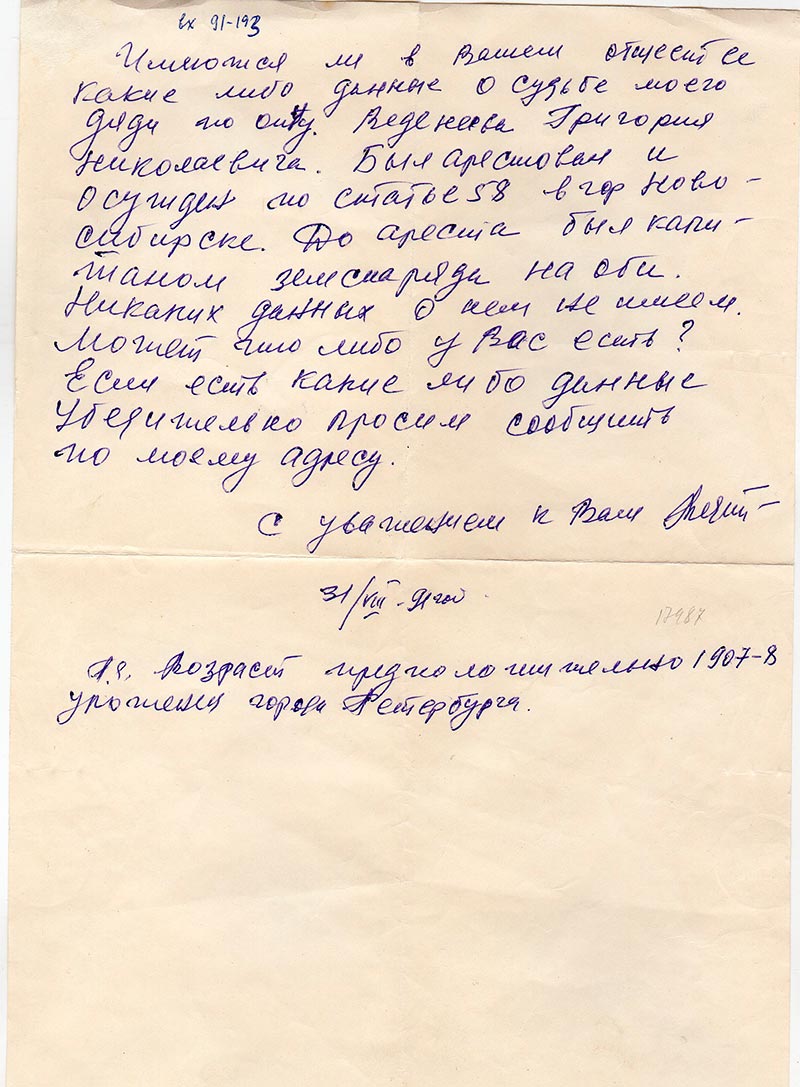 вх 91-193
Имеются ли в Вашем
какие либо данные о судьбе моего
дяди по отцу. Веденеева Григория
Николаевича. Был арестован и
осужден по статье 58 в гор Ново-
сибирске. До ареста был капи-
таном земснаряда на оби.
Никаких данных о нем не имеем.
Может что либо у Вас есть?
Если есть какие либо данные
Убедительно просим сообщить
по моему адресу.
С уважением к Вам
31/VIII-91 год
17987
Возраст предположительно 1907-8
уроженец города Петербурга.